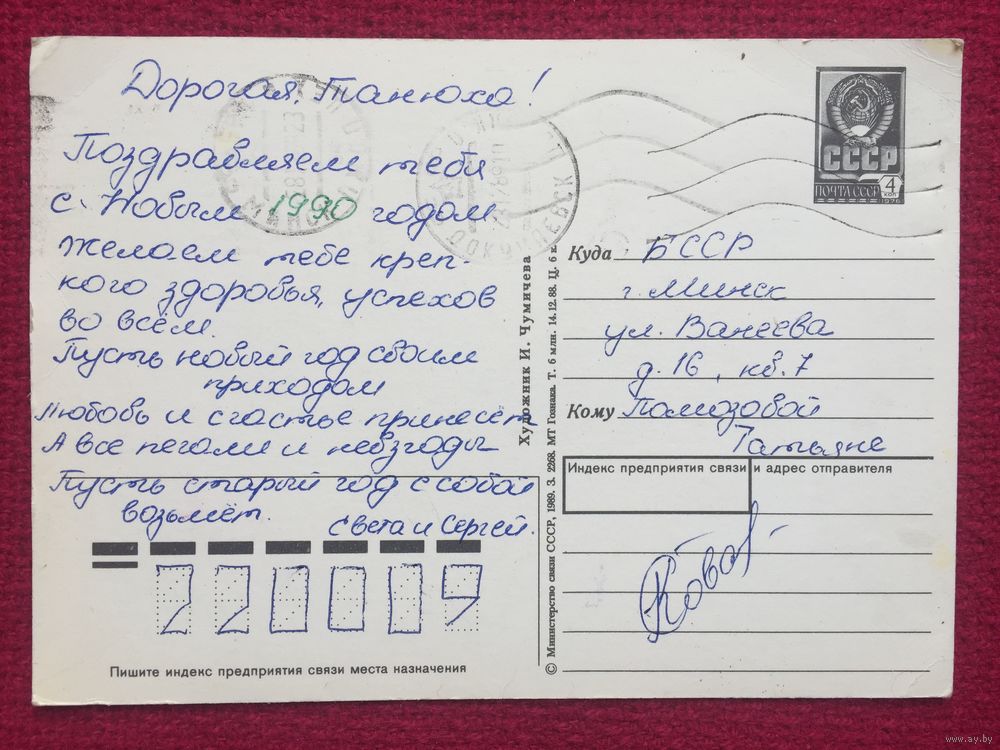 Дорогая, Танюха!
Поздравляем тебя
с Новым 1990 годом
Желаем тебе креп-
кого здоровья, успехов
во всём.
Пусть новый год своим
приходом
Любовь и счастье принесёт
А все печали и невзгоды
Пусть старый год с собой
возьмёт.
Света и Сергей.
220019
Пишите индекс предприятия связи места назначения
Художник И. Чумичева
© Министерство связи СССР, 1989. З. 2268. МТ Гознака. Т. 6 млн. 14.12.88. Ц. 6 к.
СССР
ПОЧТА СССР
4
КОП
1976
Куда БССР
г. Минск
ул. Ванеева
д. 16, кв. 7
Кому Помозовой
Татьяне
Индекс предприятия связи и адрес отправителя
www.ay.by